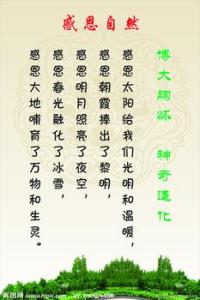 感恩自然
博大胸怀 神奇造化
感恩太阳给我们光明和温暖，
感恩朝霞捧出了黎明，
感恩明月照亮了夜空，
感恩春光融化了冰雪，
感恩大地哺育了万物和生灵。